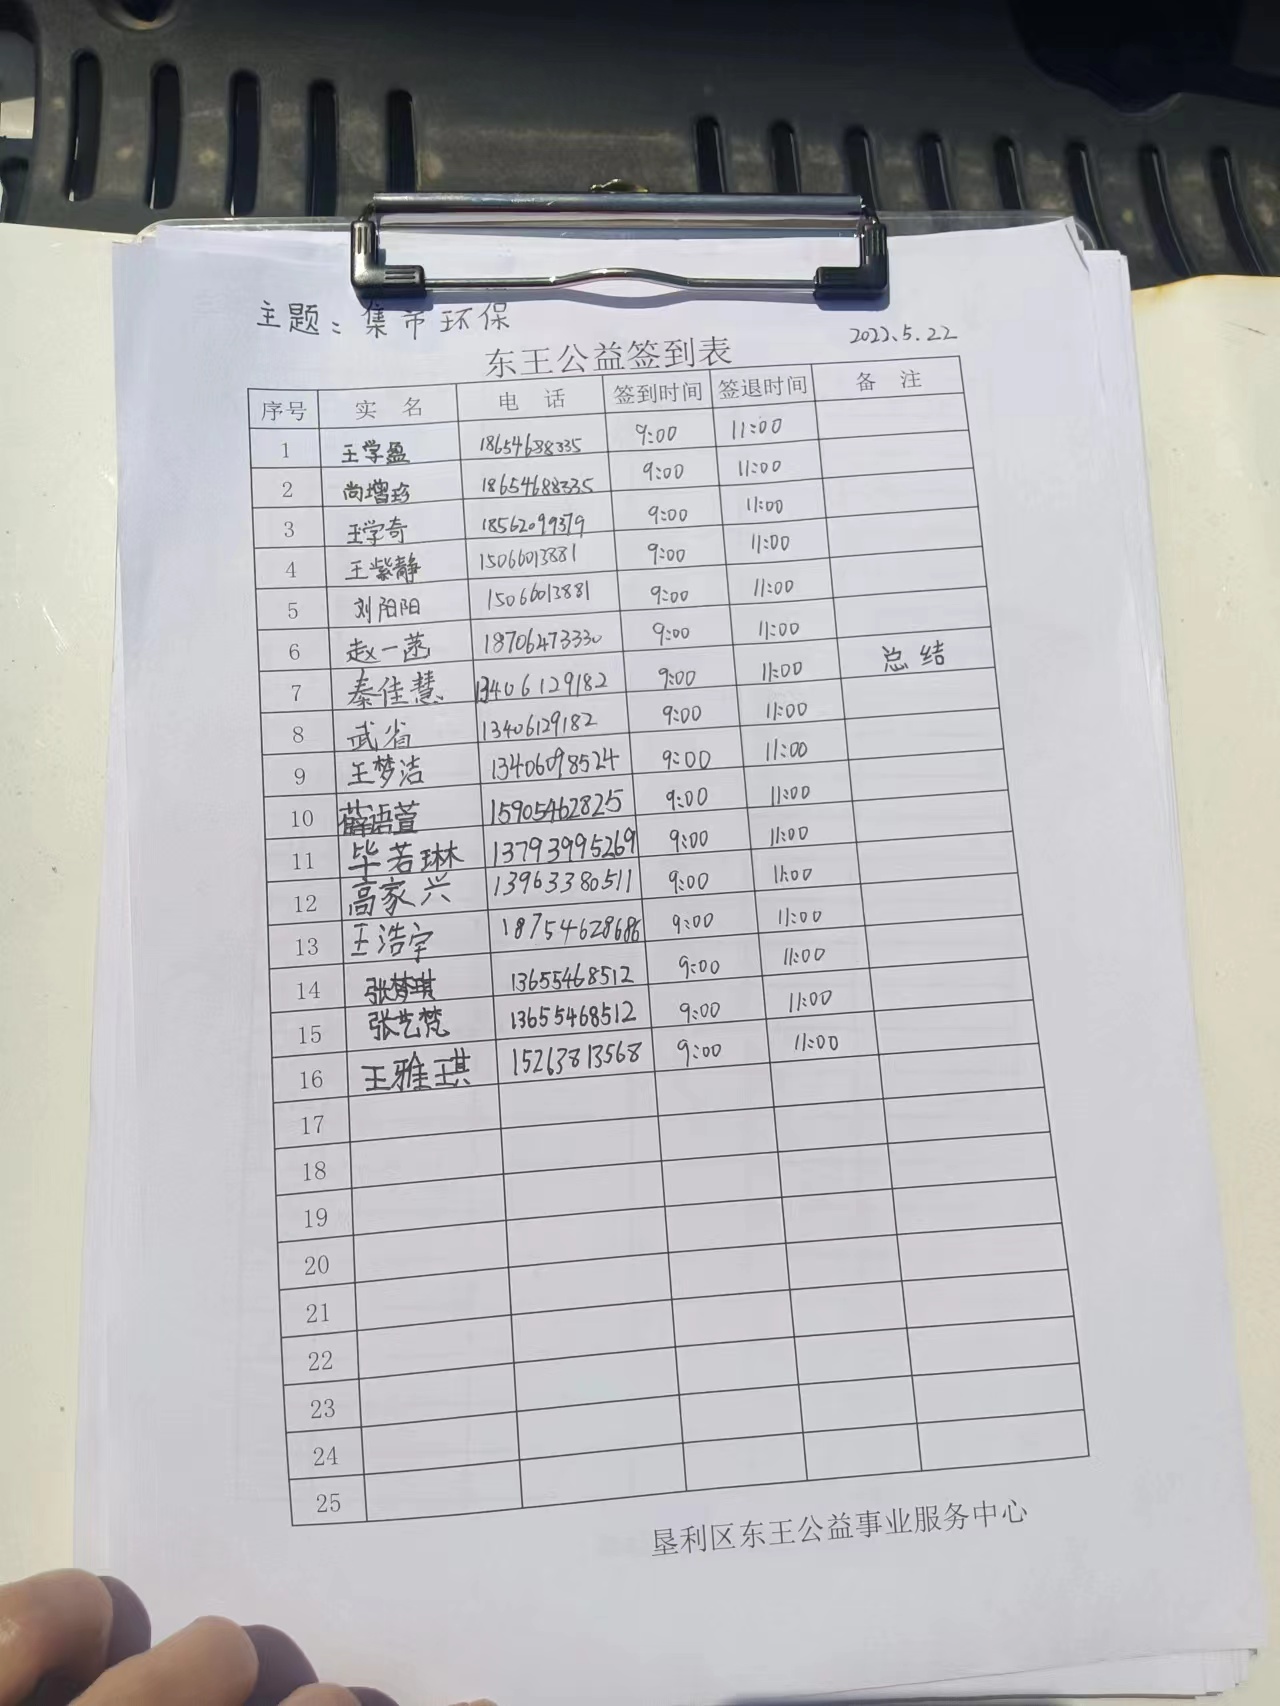 主题：集市环保
2022.5.22
东王公益签到表
序号 实 名 电 话 签到时间 签退时间 备 注
1 王学盈 18654688335 9:00 11:00
2 尚增珍 18654688335 9:00 11:00
3 王学奇 18562099379 9:00 11:00
4 王紫静 15066013881 9:00 11:00
5 刘阳阳 15066013881 9:00 11:00
6 赵一菡 18706473330 9:00 11:00
7 秦佳慧 13406129182 9:00 11:00 总结
8 武省 13406129182 9:00 11:00
9 王梦洁 13406098524 9:00 11:00
10 薛语萱 15905462825 9:00 11:00
11 毕若琳 13793995269 9:00 11:00
12 高家兴 13963380511 9:00 11:00
13 王浩宇 18754628686 9:00 11:00
14 张梦琪 13655468512 9:00 11:00
15 张艺梵 13655468512 9:00 11:00
16 王雅琪 15263813568 9:00 11:00
17
18
19
20
21
22
23
24
25
垦利区东王公益事业服务中心